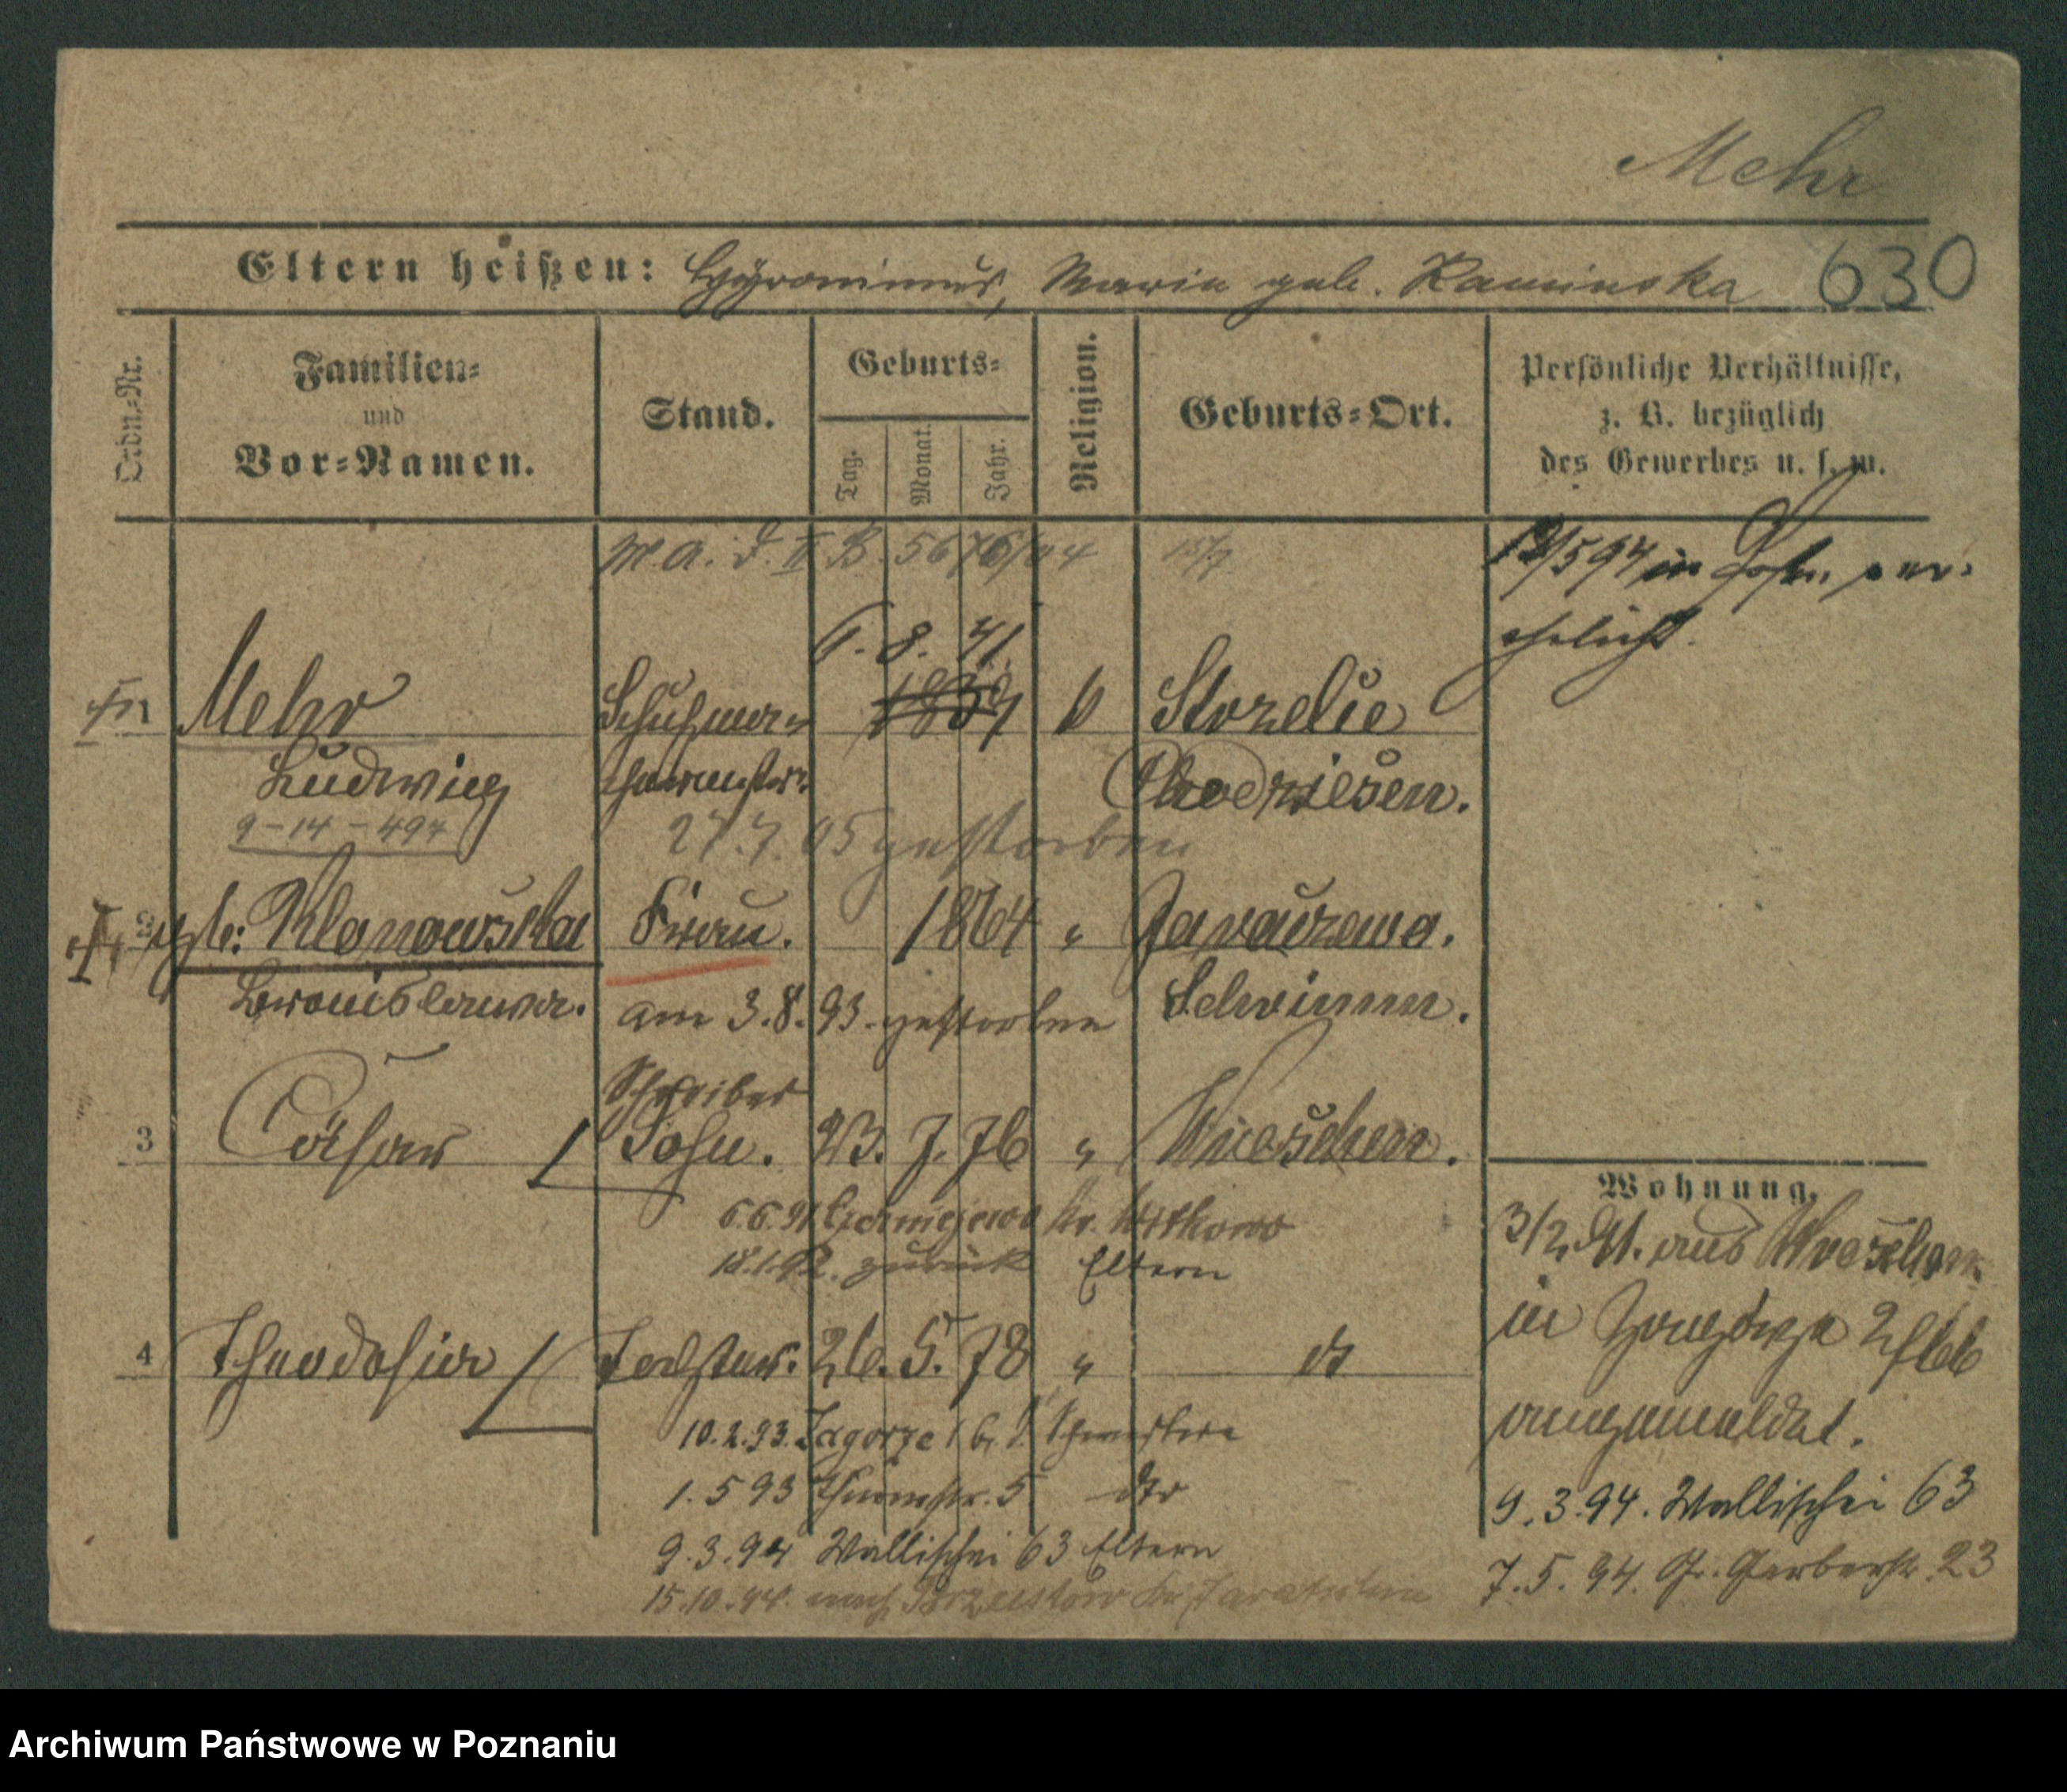 Mehr
Eltern heißen: Hyronimus, Maria geb. Kaminska 630
Ordn.-Nr.
Familien- und Vor-Namen.
Stand.
Geburts-
Tag. Monat. Jahr.
Religion.
Geburts-Ort.
Persönliche Verhältnisse,
z. B. bezüglich
des Gewerbes u. s. w.
M. A. d. II B. 5676/94 15/9
12/5 94 in Posen ver-
ehelicht.
6. 8. 41
1 Mehr Schuhmacher 1839 k Strzelce
Ludwig Chodziesen.
9-14-494
27.7.05 gestorben
2 geb: Klonowska Frau. 1864 "
Bronislawa. Schrimm.
am 3.8.93. gestorben
Schreiber
3 Cäsar Sohn. 23. 7. 76 " Wreschen.
6.6.91 Czerniejewo Kr. Witkowo
18.1.92. zurück Eltern
4 Theodosia Tochter. 26. 5. 78 " do
10.2.93. Zagorze
1.5 93 Thurmstr. 5 dto
9.3.94 Wallischei 63 Eltern
15.10.94. nach
Wohnung.
3/2. 91. aus Wreschen
in Zagorze
angemeldet.
9.3.94. Wallischei 63
7.5.94. Gr. Gerberstr. 23
Archiwum Państwowe w Poznaniu